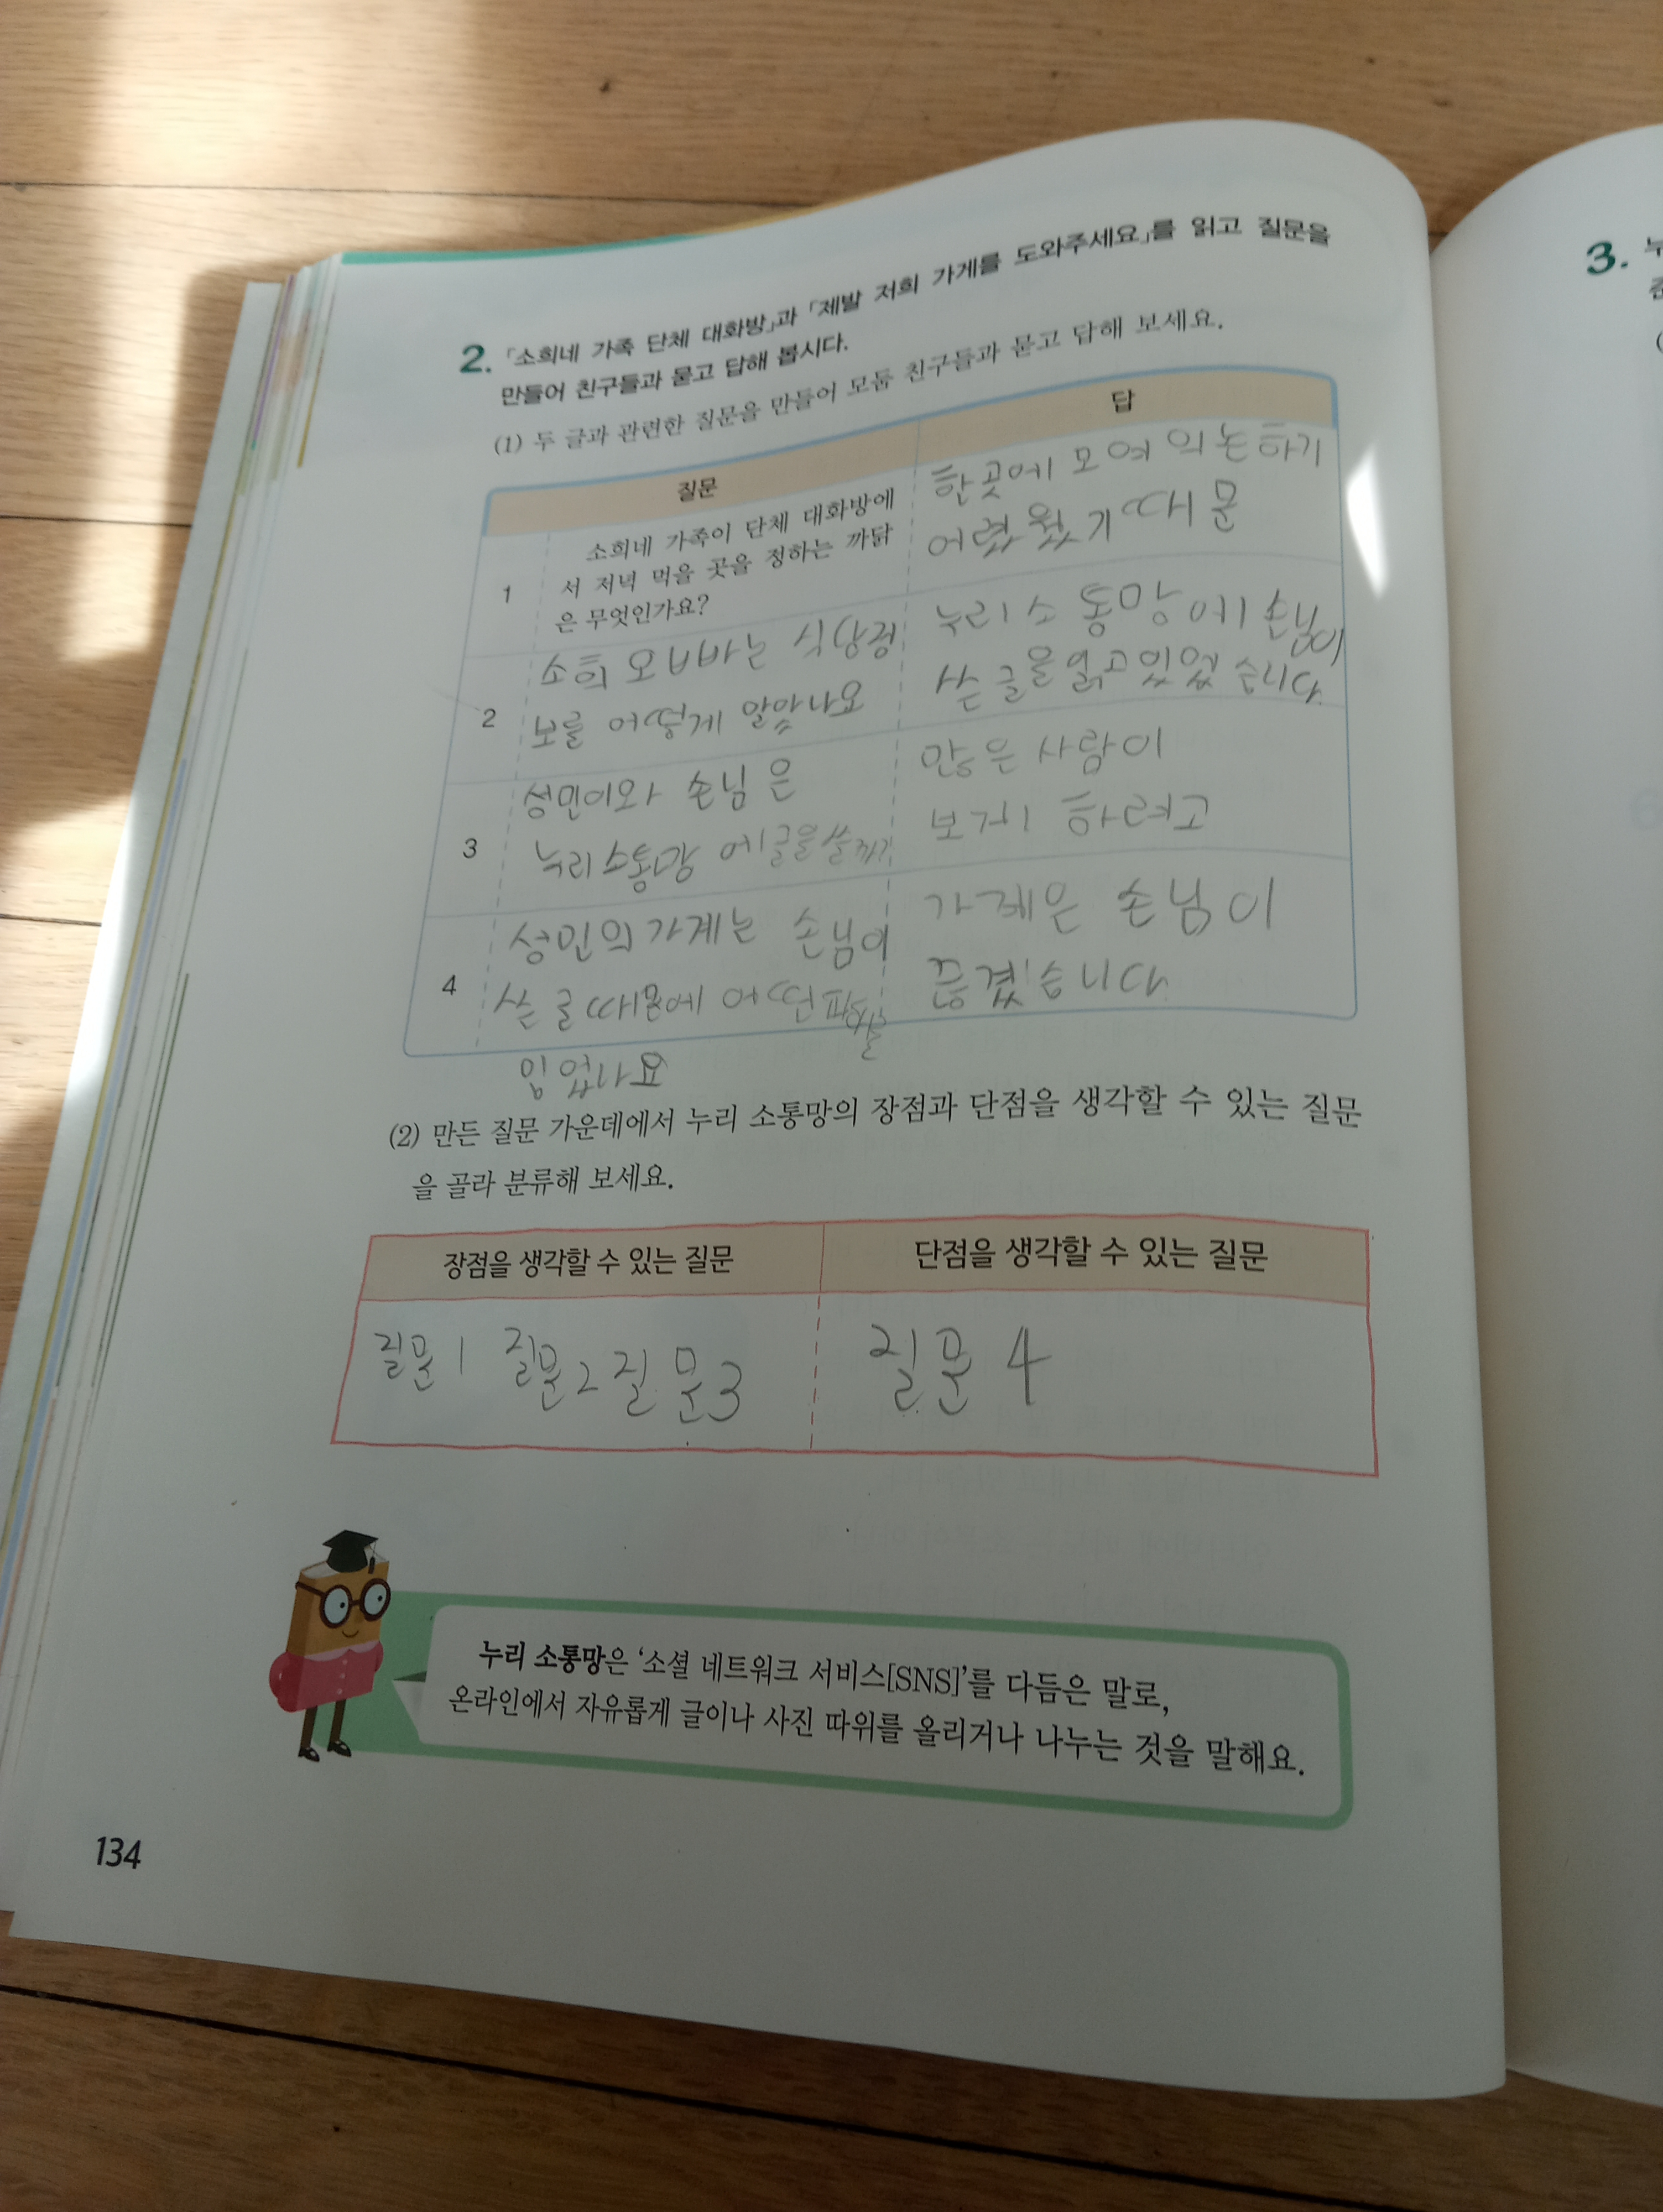 2. 「소희네 가족 단체 대화방」과 「제발 저희 가게를 도와주세요」를 읽고 질문을
만들어 친구들과 묻고 답해 봅시다.
(1) 두 글과 관련한 질문을 만들어 모둠 친구들과 묻고 답해 보세요.
질문
답
1
소희네 가족이 단체 대화방에
서 저녁 먹을 곳을 정하는 까닭
은 무엇인가요?
한곳에 모여 의논하기
어렸웠기 때문
2
소희 오빠는 식당정
보를 어떻게 알맜나요
누리소통망에 손님이
쓴 글을 읽고있었습니다.
3
성민이와 손님은
누리소통망에글을쓸까?
많은 사람이
보게 하려고
4
성민의가계는 손님이
쓴 글때문에 어떤
입었나요
가계은 손님이
습니다.
(2) 만든 질문 가운데에서 누리 소통망의 장점과 단점을 생각할 수 있는 질문
을 골라 분류해 보세요.
장점을 생각할 수 있는 질문
단점을 생각할 수 있는 질문
질문1 질문2 질문3
질문4
누리 소통망은 ‘소셜 네트워크 서비스[SNS]’를 다듬은 말로,
온라인에서 자유롭게 글이나 사진 따위를 올리거나 나누는 것을 말해요.
134
3.